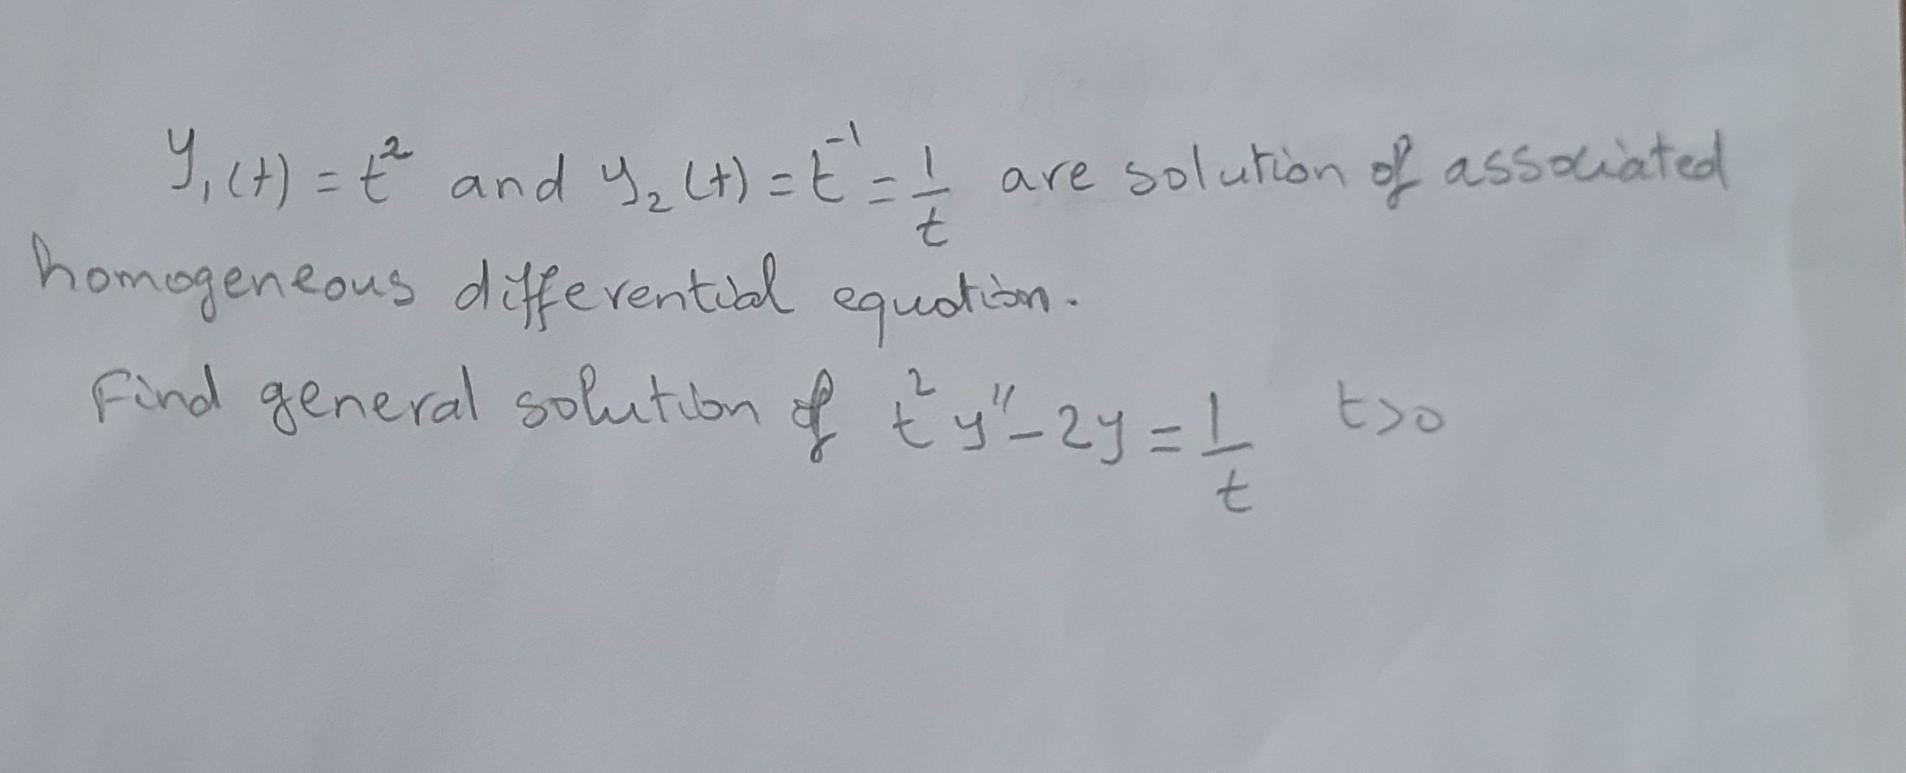 y₁(t) = t² and y₂(t) = t⁻¹ = 1/t are solution of associated
homogeneous differential equation.
Find general solution of t²y'' - 2y = 1/t t>0